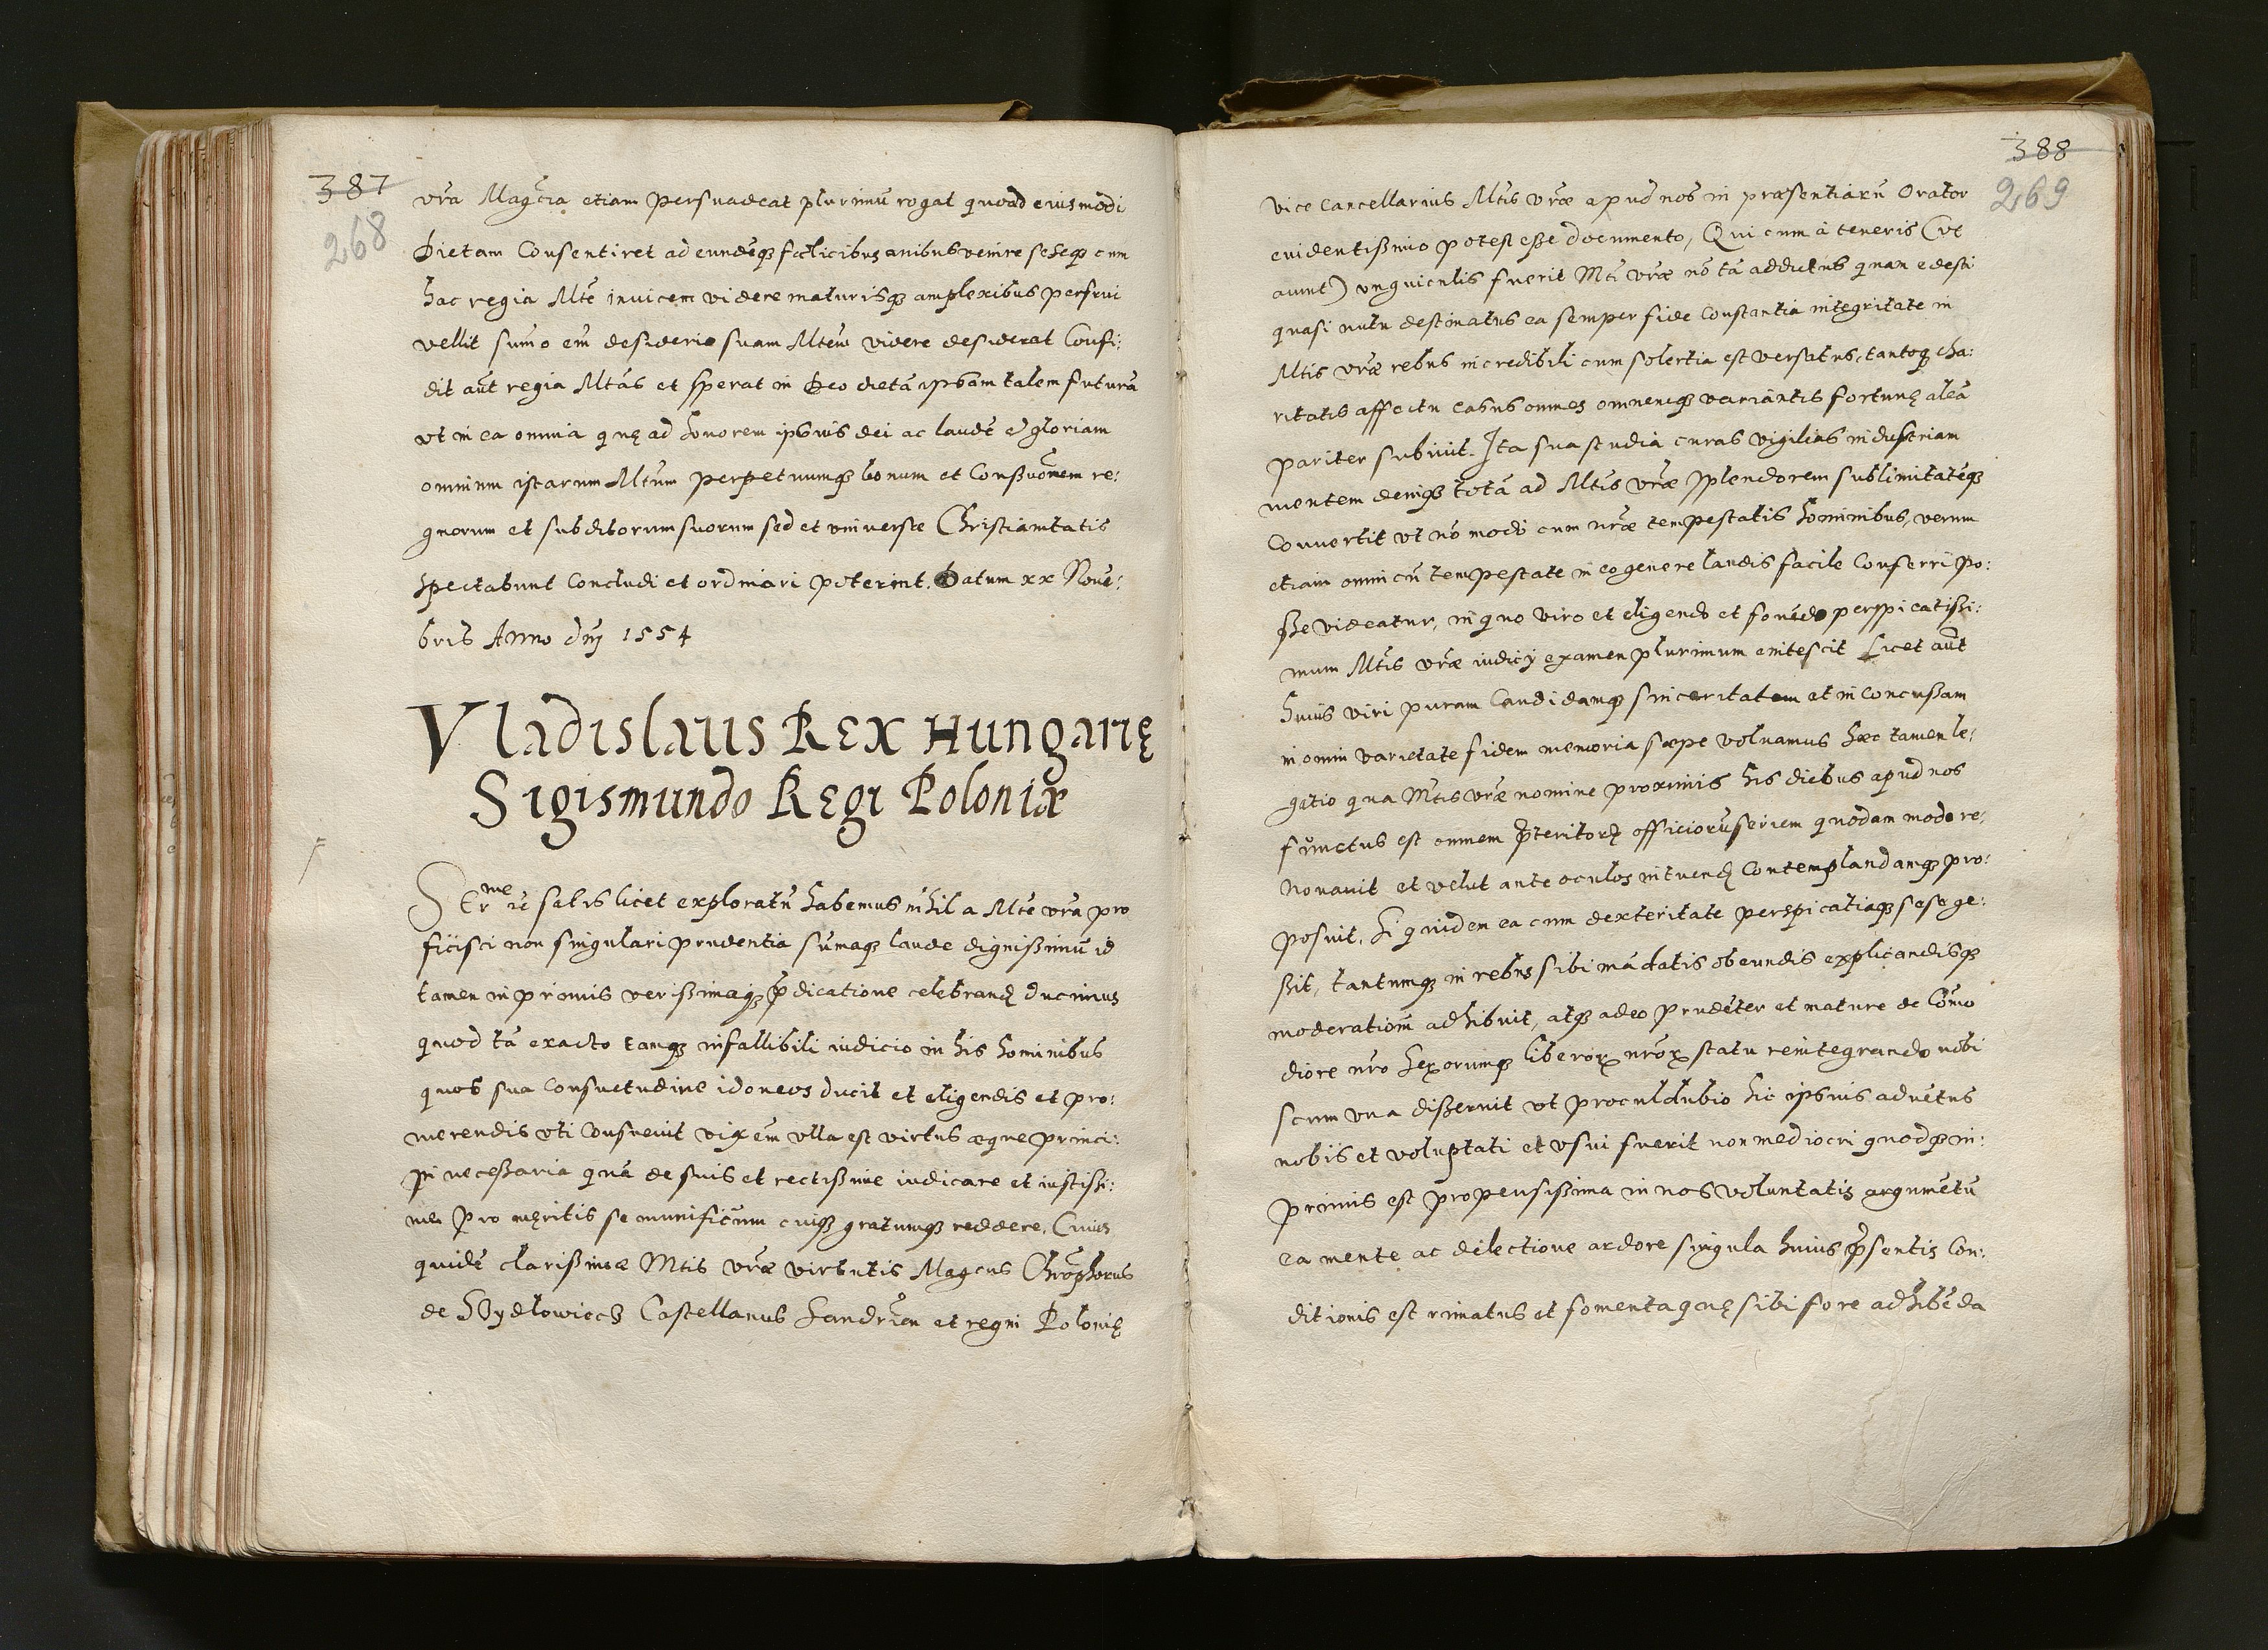 387
268
vr̃a Mag᷃cia etiam persuadeat plurimū rogat quoad eiusmodi
Dietam Consentiret ad eundēqȝ fœlicibus auibus venire seseqȝ cum
hac regia Mt̃e inuicem videre maturisqȝ amplexibus perfrui
vellit sum̃o em̃ desiderio suam Mt̃em videre desiderat Confi:
dit aũt regia Mt̃as et sperat in Deo dietā ip̃sam talem futurā
vt in ea omnia quę ad honorem ipsius dei ac laudē et gloriam
omnium istarum Mt̃um perpetuumqȝ bonum et Conßuõnem re:
gnorum et subditorum suorum sed et vniuerse Christianitatis
spectabunt Concludi et ordinari poterint. Datum xx Noue:
bris Anno dn̄j 1554
Vladislaus Rex Hungarię
Sigismundo Regi Poloniæ
Ser^me re satis licet exploratū habemus nihil a Mt̃e vr̃a pro
ficisci non singulari prudentia sūmaqȝ laude dignißimū id
tamen in primis verißimaqȝ p̃dicatione celebrand̨ ducimus
quod tā exacto tamqȝ infallibili iudicio in his hominibus
quos sua Consuetudine idoneos ducit et eligendis et pro:
merendis vti Consueuit vix em̃ vlla est virtus æque princi:
pi neceßaria quā de suis et rectißime iudicare et iustißi:
me pro meritis se munificum cuiqȝ gratumqȝ reddere. Cuius
quidē clarißimæ Mt̃is vr̃æ virtutis Mag᷃cus Chrõphorus
de SZydlowiecz Castellanus Sandriẽn et regni Polonię
388
269
vice Cancellarius Mt̃is vr̃æ apud nos in præsentiarū Orator
euidentißimo potest eße documento, Qui cum à teneris (vt
aiunt) vnguiculis fuerit Mt̃i vr̃æ nō tā addictus quam edesti
quasi nutu destinatus ea semper fide Constantia integritate in
Mt̃is vr̃æ rebus incredibili cum solertia est versatus, tantoqȝ cha:
ritatis affectu casus omnes omnemqȝ variantis fortunę aleā
pariter subiuit. Ita sua studia curas vigilias industriam
mentem deniqȝ totā ad Mt̃is vr̃æ splendorem sublimitatēqȝ
Conuertit vt nō modo cum nr̃æ tempestatis hominibus, verum
etiam omni cū tempestate in eo genere laudis facile Conferri po:
ße videatur, in quo viro et eligendo et fouēdo perspicatißi:
mum Mt̃is vr̃æ iudicij examen plurimum enitescit Licet aũt
huius viri puram Candidamqȝ sinceritatem et inConcußam
in omni varietate fidem memoria sæpe voluamus hæc tamen le:
gatio qua Mt̃is vr̃æ nomine proximis his diebus apud nos
functus est omnem p̃teritorꝝ officiorū seriem quodam modo re:
nouauit et velut ante oculos intuend̨ Contemplandamqȝ pro:
posuit. Siquidem ea cum dexteritate perspicatiaqȝ sese ge:
ßit, tantumqȝ in rebus sibi mādatis obeundis explicandisqȝ
moderatiom̃ adhibuit, atqȝ adeo prudēter et mature de Com̃o
diore nr̃o Sexorumqȝ liberoꝝ nr̃oꝝ statu reintegrando nobi
scum vna dißeruit vt proculdubio hic ipsius aduētus
nobis et voluptati et vsui fuerit non mediocri quodqȝ in:
primis est propensißima in nos voluntatis argumētū
ea mente ac dilectione ardore singula huius p̃sentis Con:
ditionis est rimatus et fomenta quę sibi fore adhibēda